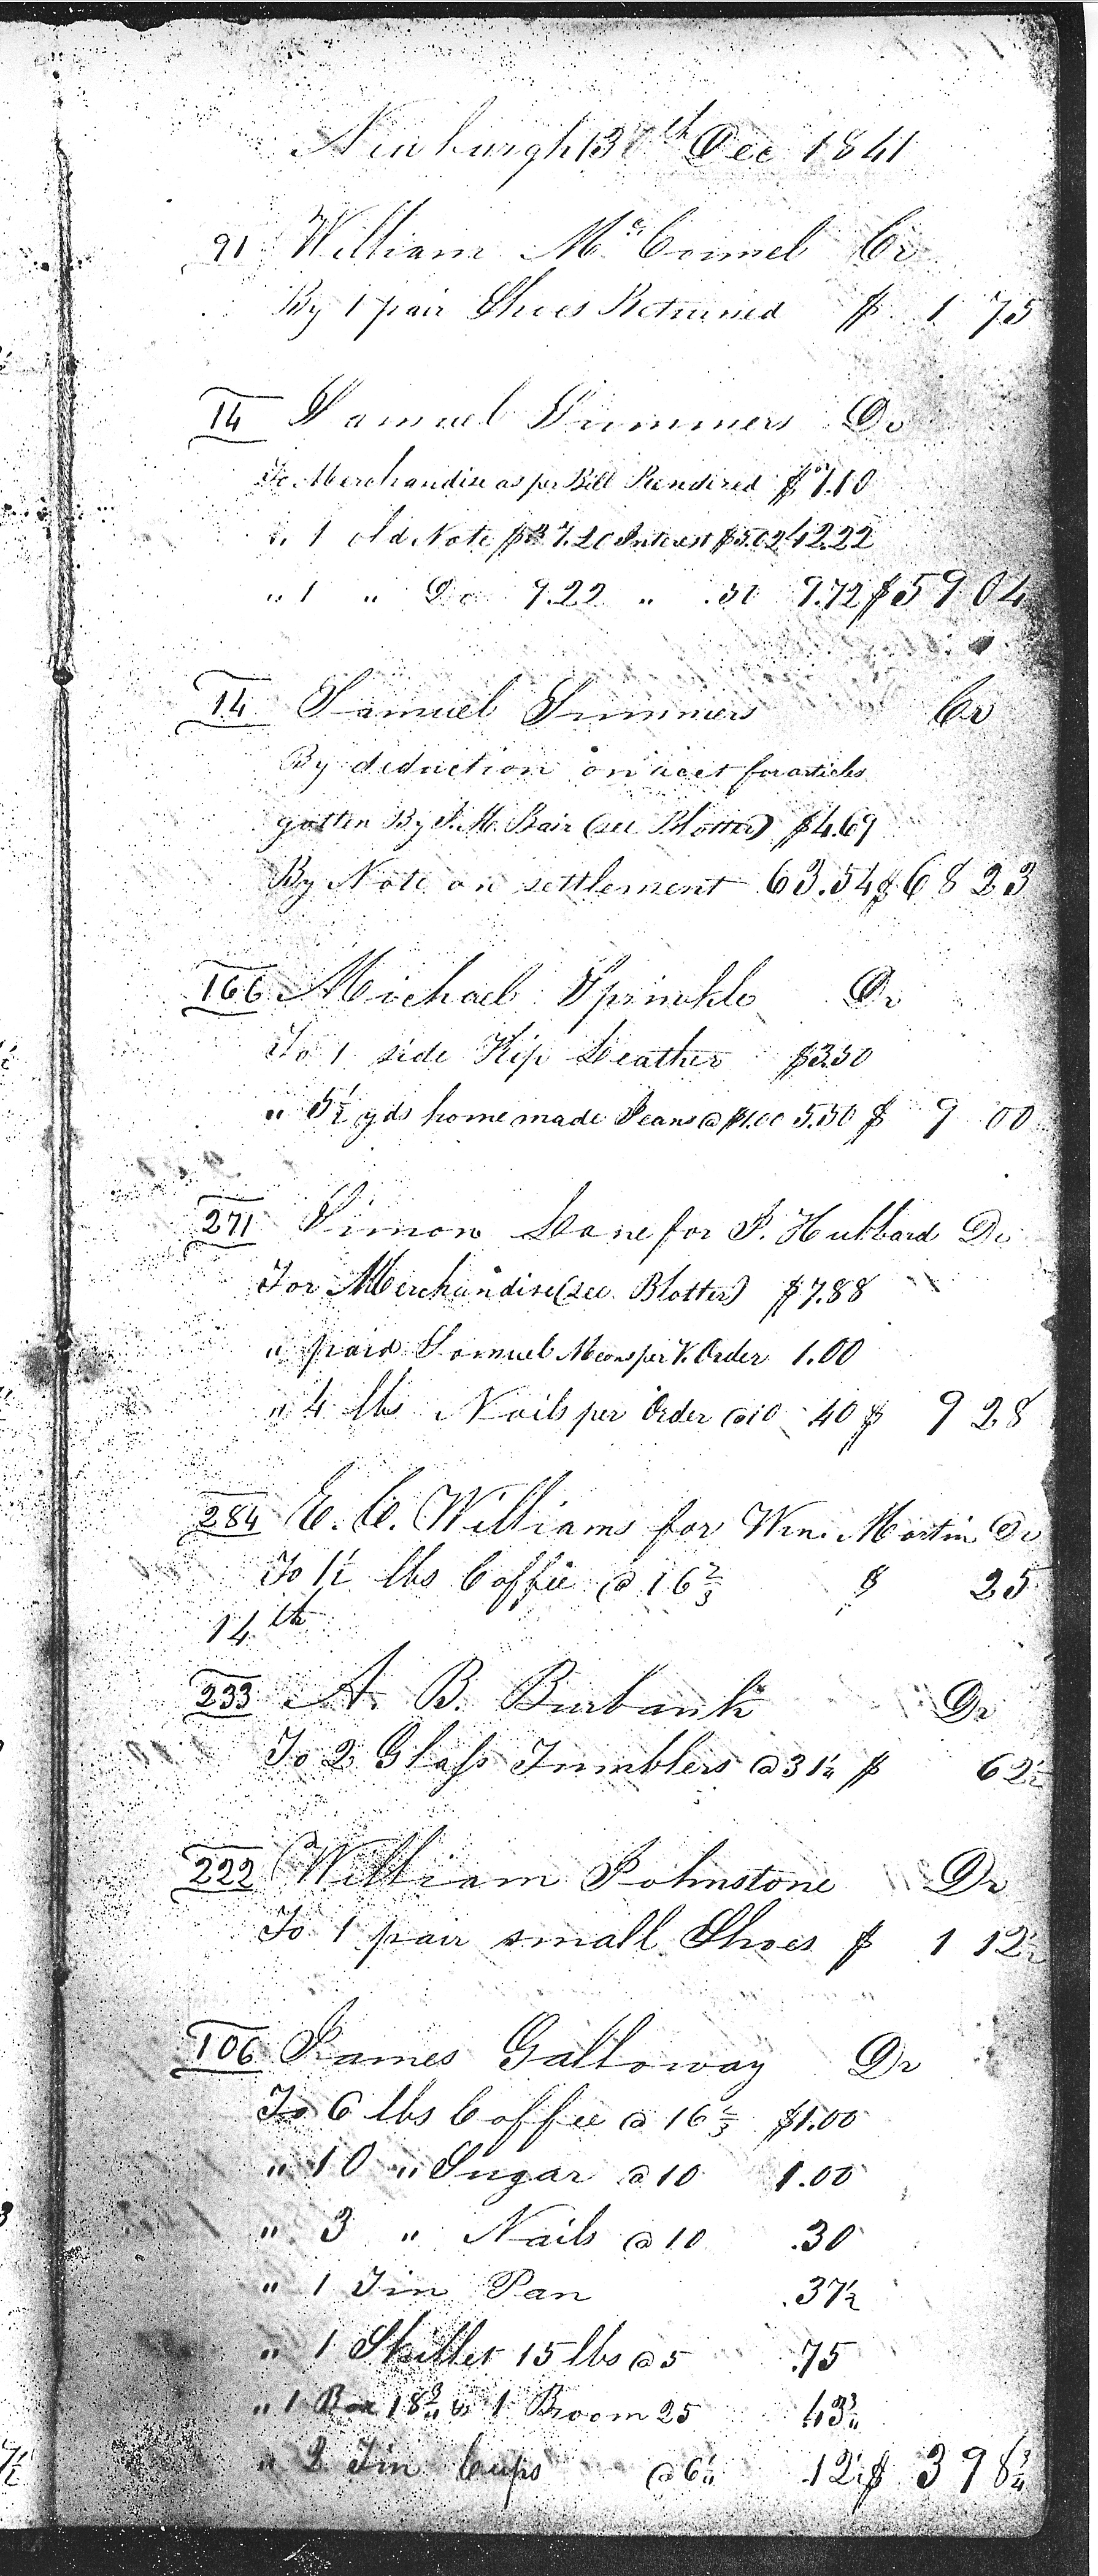 Newburgh 13th Dec 1841
91 William McConnel Cr
By 1 pair Shoes Returned $ 1 75
14 Samuel Summers Dr
To Merchandise as per Bill Rendered $7.10
" 1 old Note $37.20 Interest $5.02 42.22
" 1 " Do 9.22 " .50 9.72 $59 04
14 Samuel Summers Cr
By deduction on acct for articles
gotten By J. M. Bair (see Blotter) $4.69
By Note on settlement 63.54 $68 23
166 Michael Sprinkle Dr
To 1 side Kip Leather $3.50
" 5½ yds home made Jeans @ $1.00 5.50 $ 9 00
271 Simon Lane for J. Hubbard Dr
For Merchandise (see Blotter) $7.88
" paid Samuel Means per V. Order 1.00
" 4 lbs Nails per Order @ 10 40 $ 9 28
284 E. C. Williams for Wm. Martin Dr
To 1½ lbs Coffee @ 16⅔ $ 25
14th
233 A. B. Burbank Dr
To 2 Glass Tumblers @ 31¼ $ 62½
222 William Johnstone Dr
To 1 pair small Shoes $ 1 12½
106 James Galloway Dr
To 6 lbs Coffee @ 16⅔ $1.00
" 10 " Sugar @ 10 1.00
" 3 " Nails @ 10 .30
" 1 Tin Pan .37½
" 1 Skillet 15 lbs @ 5 .75
" 1 Box 18¾ & 1 Broom 25 43¾
" 2 Tin Cups @ 6¼ .12½ $ 3 98¾